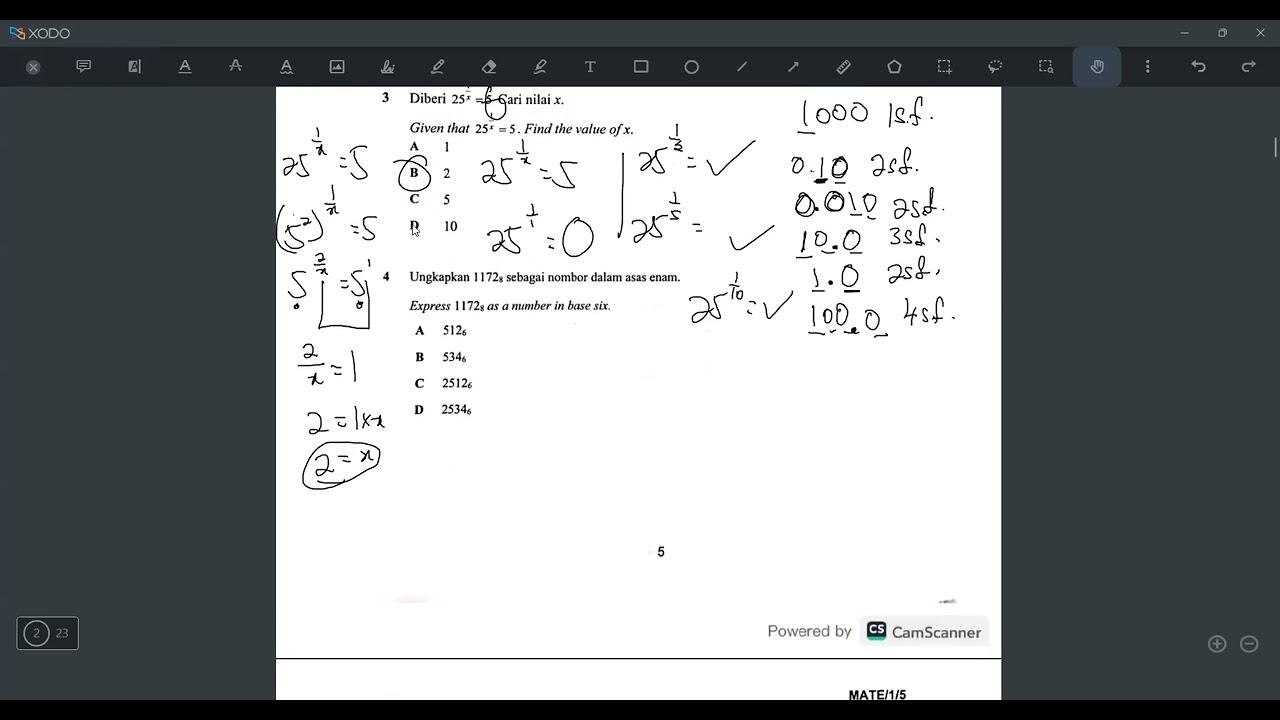 XODO
3 Diberi 25^{1/x} = 5. Cari nilai x.
Given that 25^{1/x} = 5. Find the value of x.
A 1
B 2
C 5
D 10
25^{1/x} = 5
(5²)^{1/x} = 5
5^{2/x} = 5¹
2/x = 1
2 = 1 × x
2 = x
25^{1/x} = 5
25^{1/1} =
25^{1/2} = ✓
25^{1/5} = ✓
25^{1/10} = ✓
1000 1s.f.
0.10 2sf.
0.010 2sf.
10.0 3sf.
1.0 2sf.
100.0 4sf.
4 Ungkapkan 1172₈ sebagai nombor dalam asas enam.
Express 1172₈ as a number in base six.
A 512₆
B 534₆
C 2512₆
D 2534₆
5
2 23
Powered by CS CamScanner
MATE/1/5